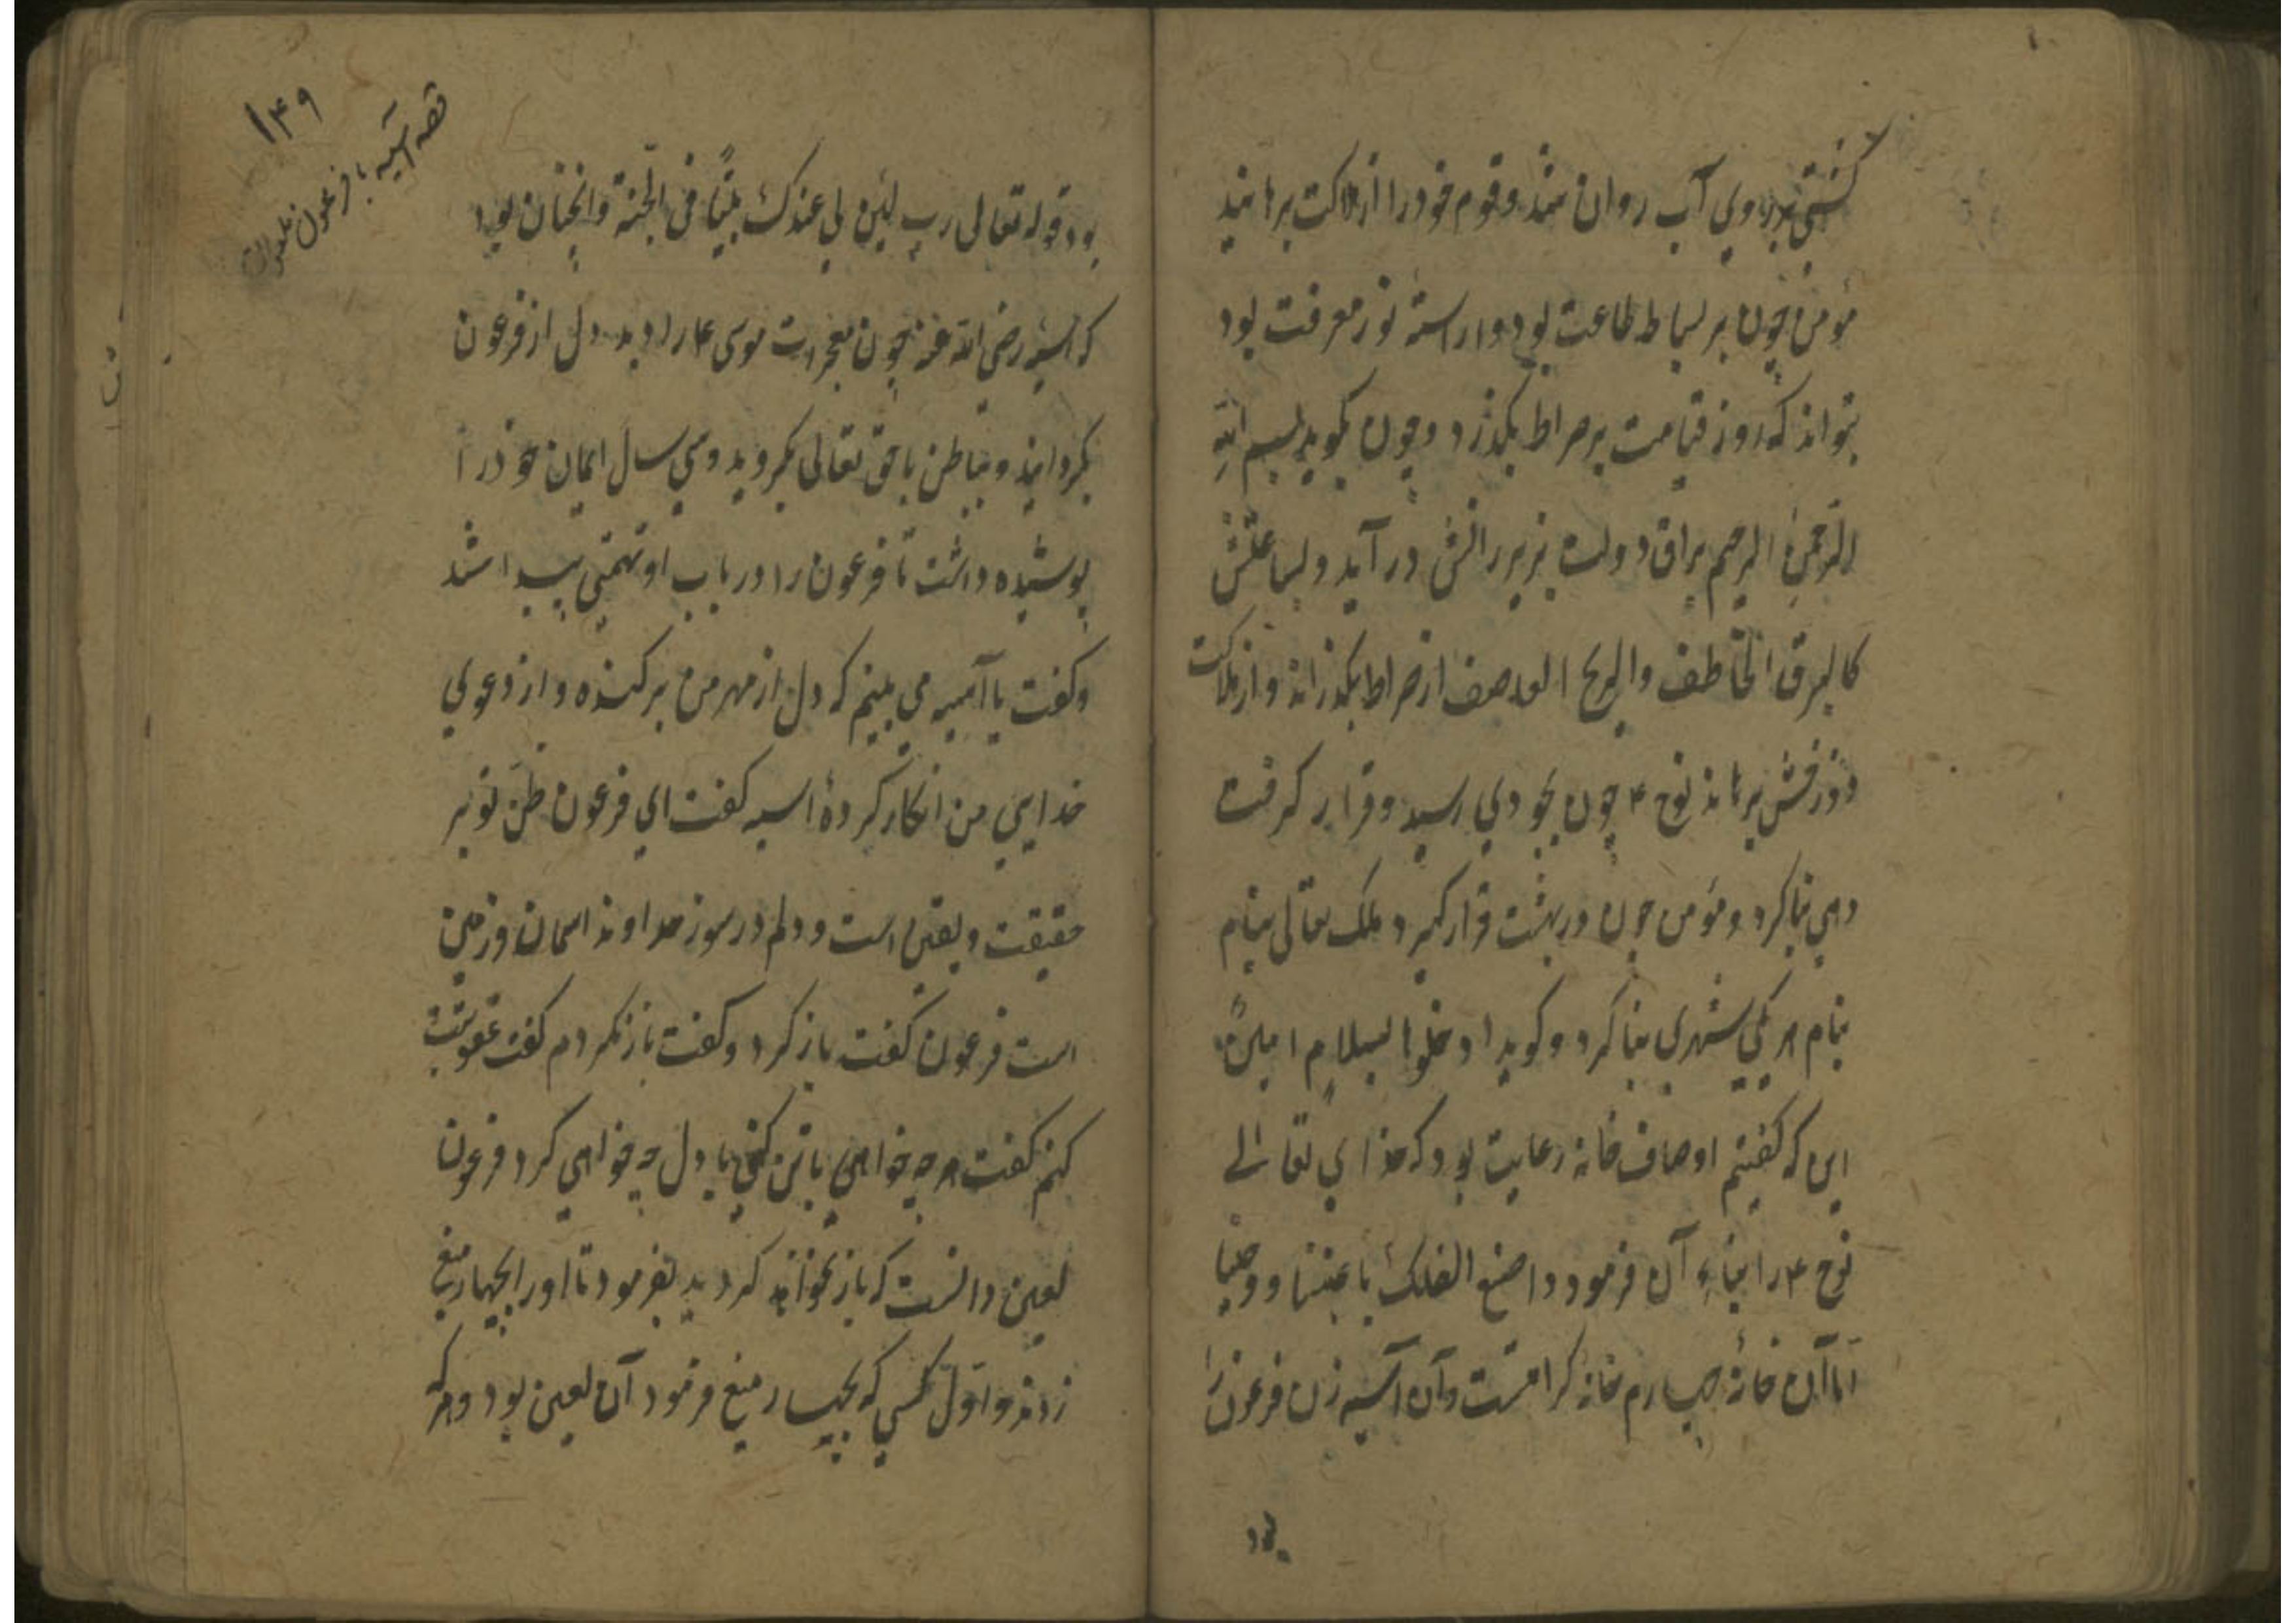 کشتی بر روی آب روان شد و قوم خود را از هلاکت برهانید
مؤمن چون بر بساط طاعت بود و آراسته نور معرفت بود
بتواند که روز قیامت بر صراط بگذرد و چون بگوید بسم الله
الرحمن الرحیم براق دولت بزیر رانش در آید و بساعتش
کالبرق الخاطف والریح العاصف از صراط بگذراند و از هلاکت
دوزخش برهاند نوح ۴ چون بجودی رسید و قرار گرفت
دهی بنا کرد و مؤمن چون در بهشت قرار گیرد ملک تعالی بنام
بنام هر یکی شهری بنا کرد و گوید ادخلوا بسلام امنین
این که گفتیم اوصاف خانه رعایت بود که خدای تعالی
نوح ۴ را بناء آن فرمود واصنع الفلک باعیننا ووحینا
اما آن خانهٔ چهارم خانه کرامتست و آن آسیه زن فرعون را
بود
۱۴۹
قصه آسیه با فرعون
بود قوله تعالی رب ابن لی عندک بیتا فی الجنة و انچنان بود
که آسیه رضی الله عنه چون معجزات موسی ۴ را دید دل از فرعون
بگردانید و بباطن با حق تعالی بگروید و سی سال ایمان خود را
پوشیده داشت تا فرعون را در باب او تهمتی پیدا شد
و گفت یا آسیه می بینم که دل از مهر من بر کنده و از دعوی
خدایی من انکار کردهٔ اسیه گفت ای فرعون ظن تو بر
حقیقت و یقین است و دلم در سوز خداوند اسمان و زمین
است فرعون گفت باز گرد و گفت باز نگردم گفت عقوبتت
کنم گفت هر چه خواهی با تن کنی با دل چه خواهی کرد فرعون
لعین دانست که باز نخواند گردید بفرمود تا او را بچهار میخ
زدند و اول کسی که بچهار میخ فرمود آن لعین بود و هر که